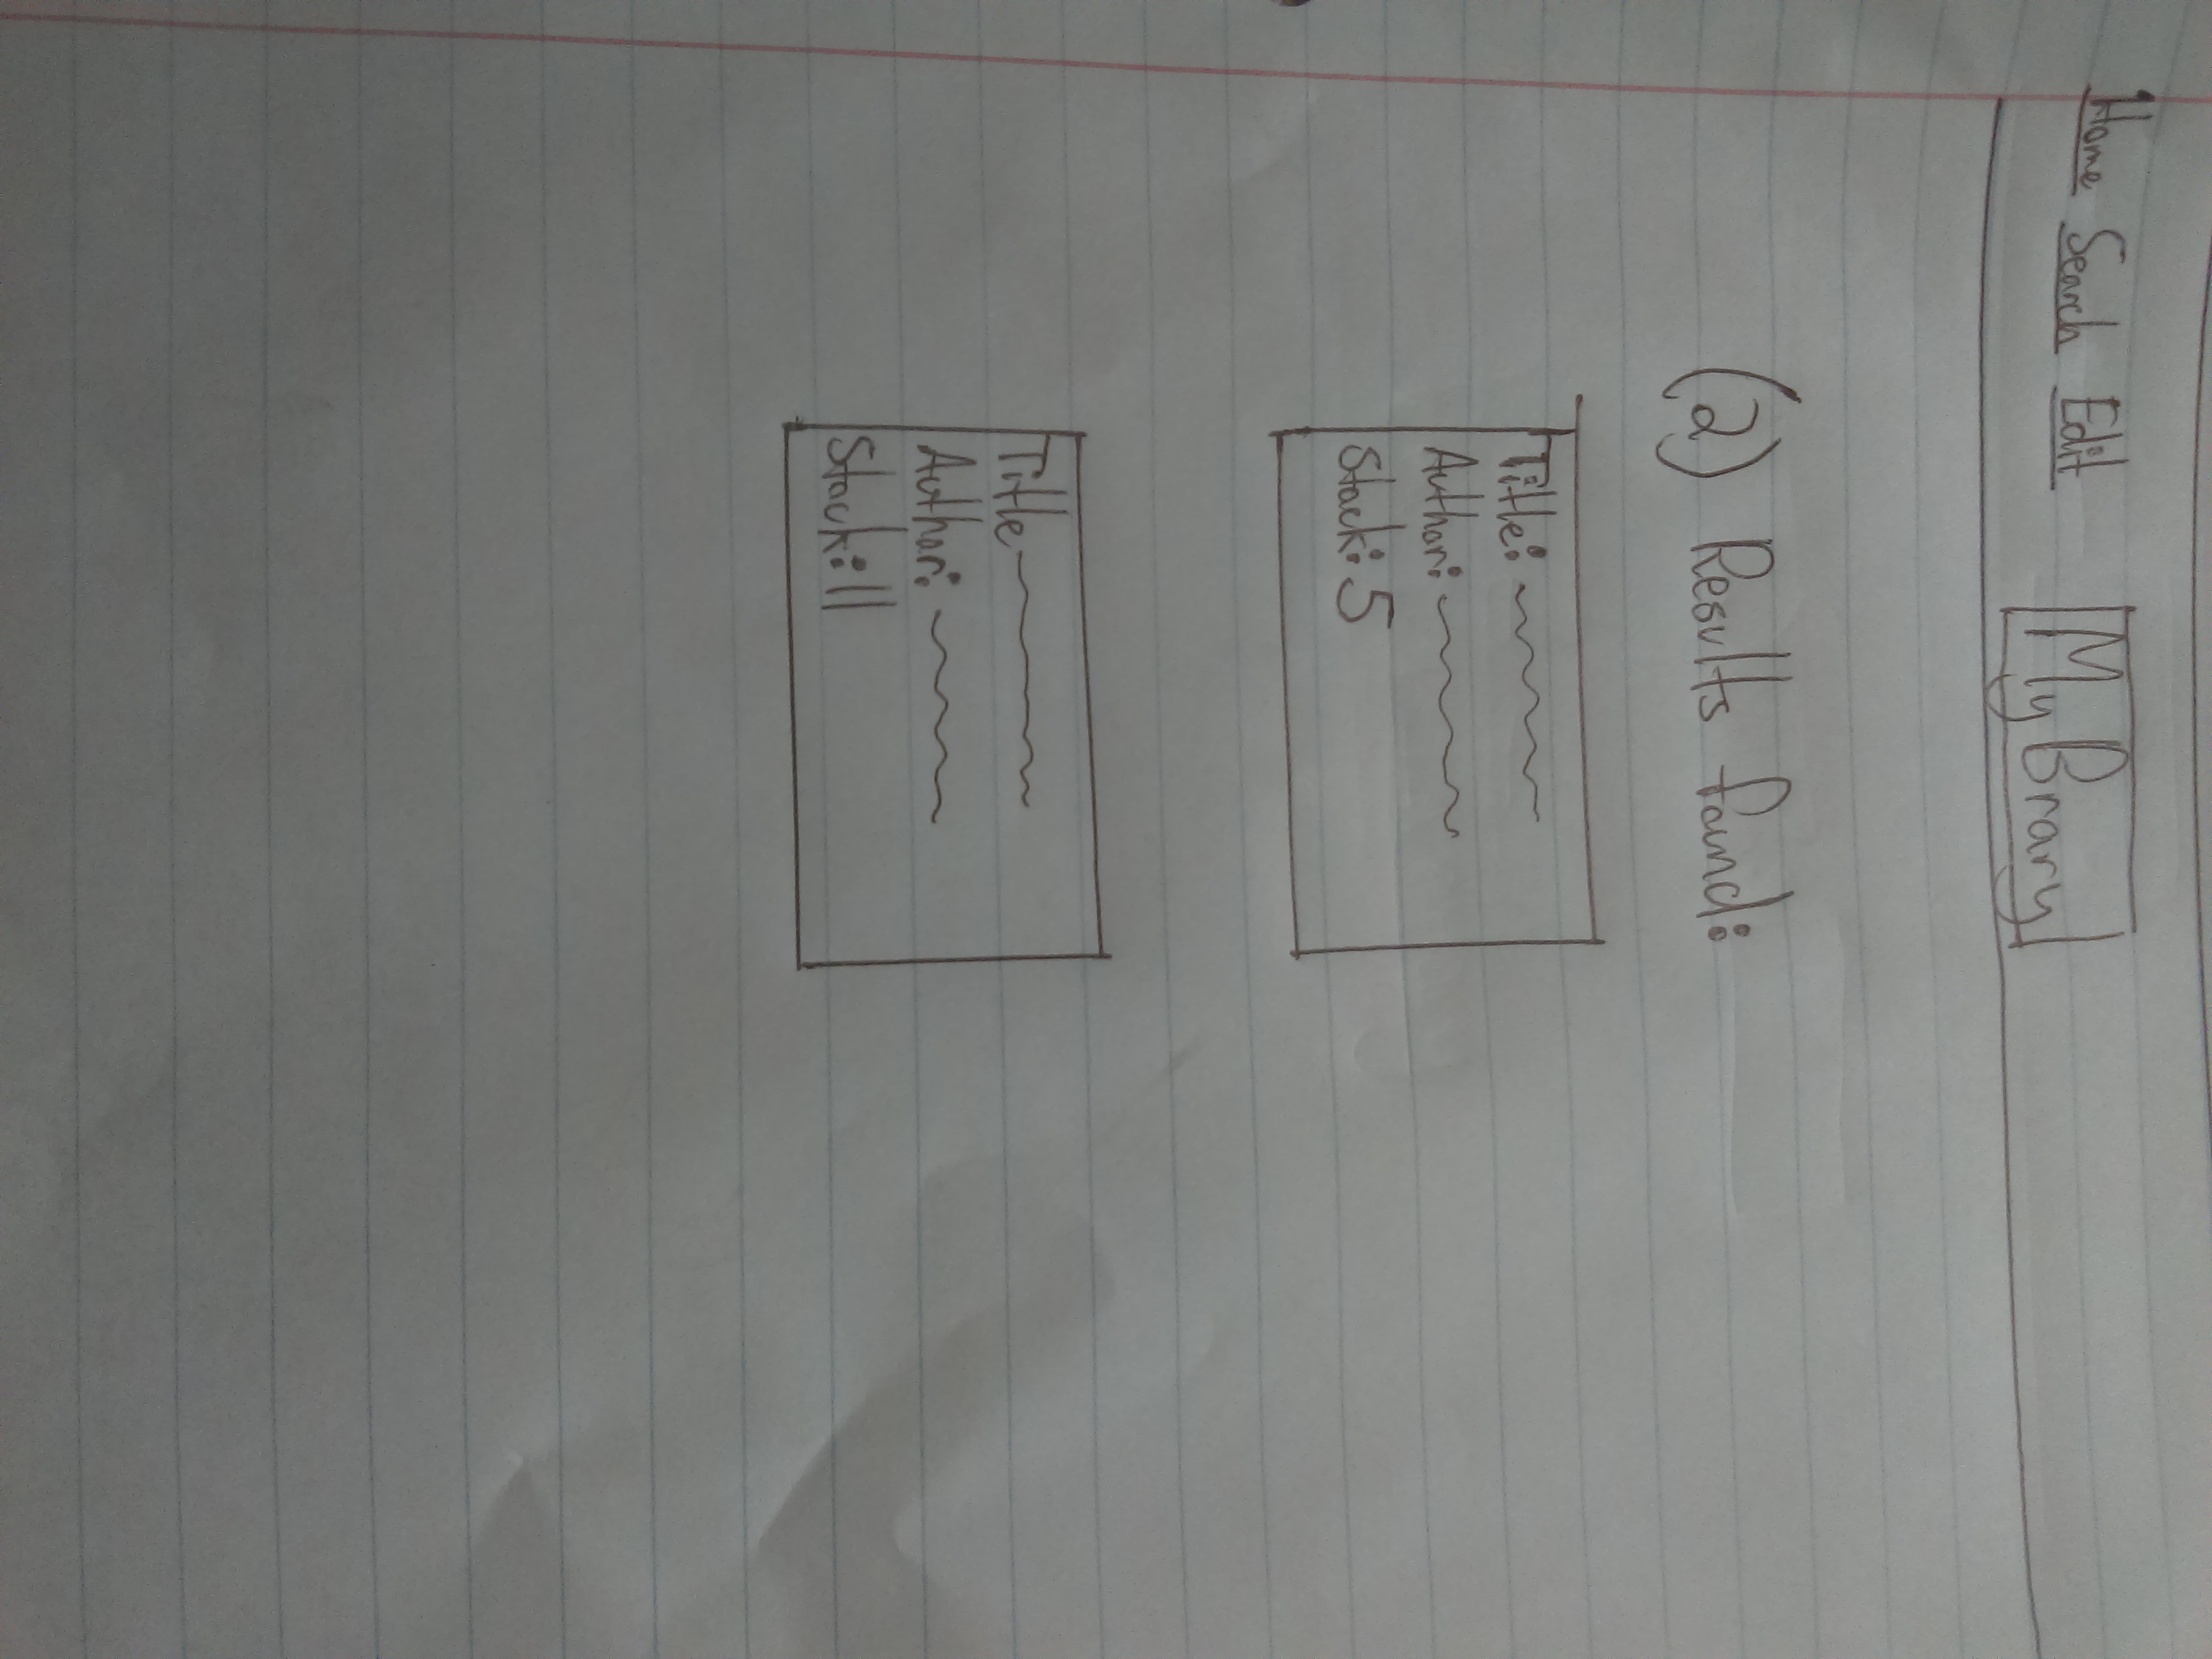 Home Search Edit My Brary
(2) Results found:
Title:
Author:
Stack: 5
Title
Author:
Stack: 11